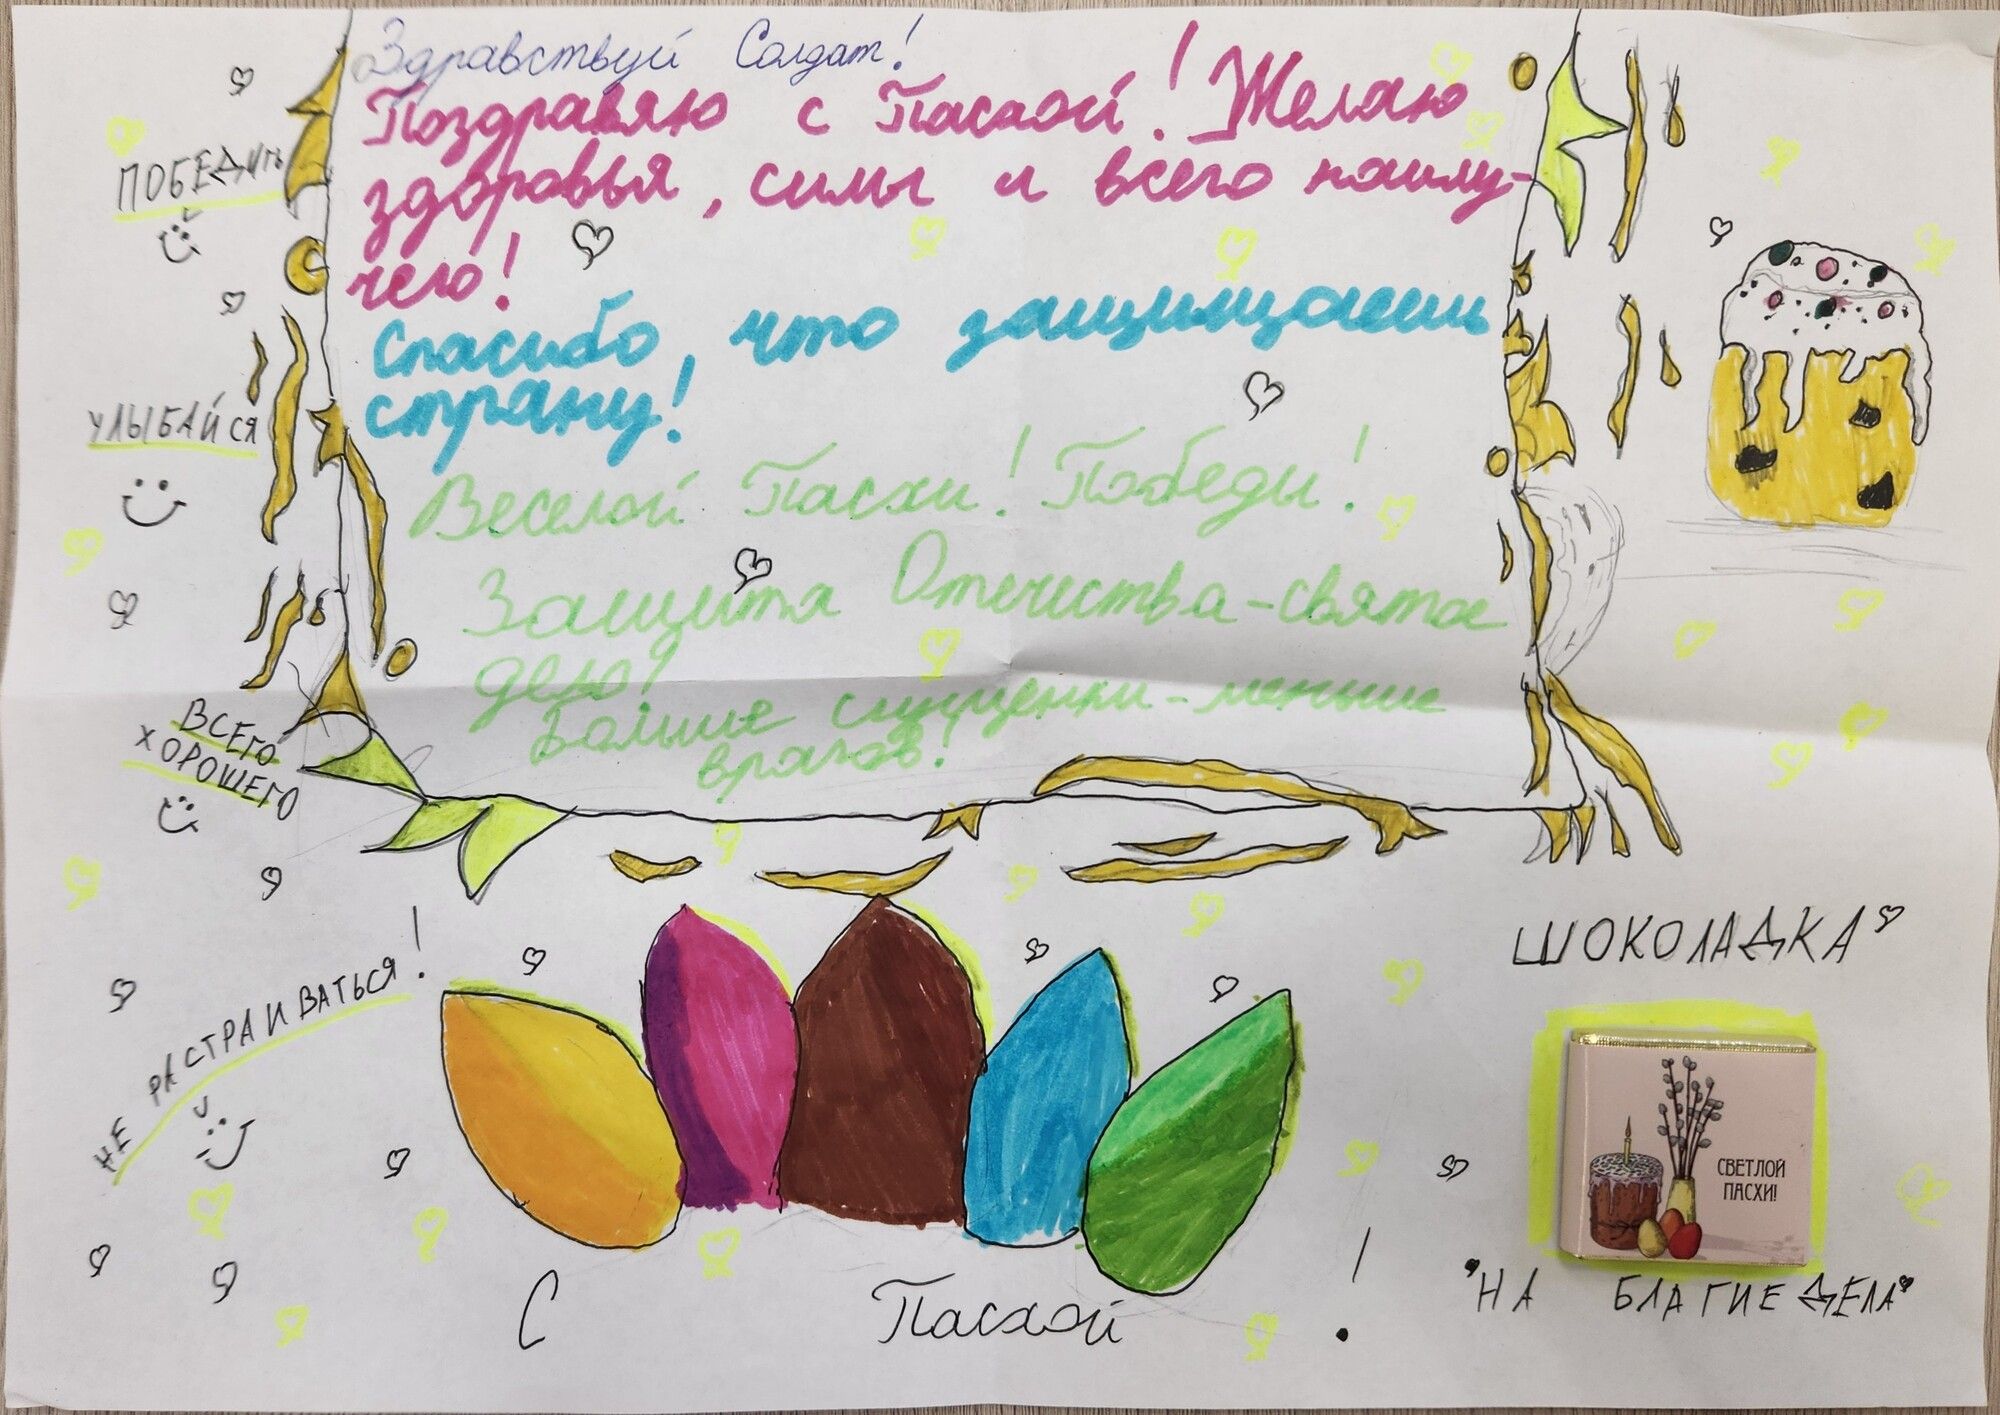 Здравствуй Солдат!
Поздравяю с Пасхой! Желаю
здоровья, силы и всего наилу-
чего!
Спасибо, что защищаешь
страну!
Веселой Пасхи! Победы!
Защита Отечества-святое
дело!
Больше сгущенки-меньше
врагов!
ПОБЕДИТЬ
УЛЫБАЙСЯ
ВСЕГО
ХОРОШЕГО
НЕ РАССТРАИВАТЬСЯ!
С Пасхой !
ШОКОЛАДКА
СВЕТЛОЙ
ПАСХИ!
"НА БЛАГИЕ ДЕЛА"